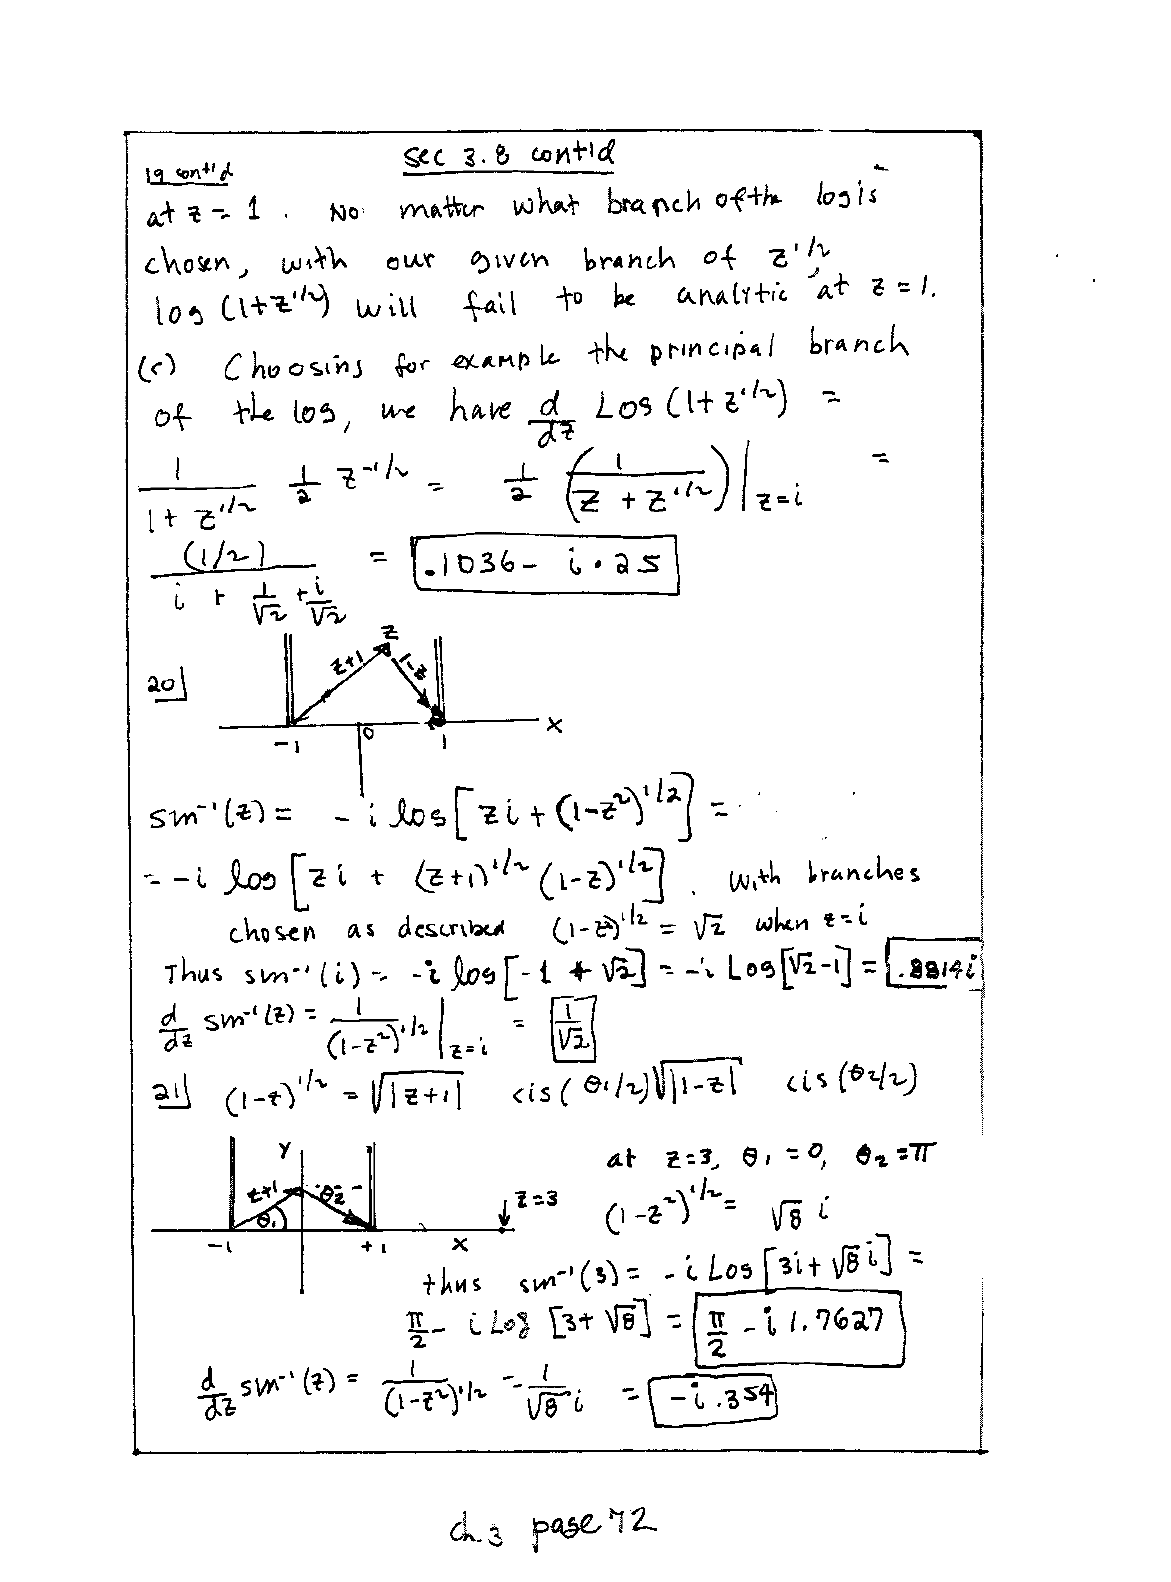 sec 3.8 cont'd
19 cont'd
at z = 1. No matter what branch of the log is
chosen, with our given branch of z^{1/2},
log (1+z^{1/2}) will fail to be analytic at z = 1.
(c) Choosing for example the principal branch
of the log, we have d/dz Log (1+z^{1/2}) =
1/(1+z^{1/2}) 1/2 z^{-1/2} = 1/2 (1/(z+z^{1/2}))|_{z=i} =
(1/2)/(i + 1/√2 + i/√2) = .1036 - i .25
20]
z
z+1 1-z
-1 0 1 x
sin^{-1}(z) = -i log[zi + (1-z^2)^{1/2}] =
= -i log[zi + (z+1)^{1/2} (1-z)^{1/2}]. With branches
chosen as described (1-z^2)^{1/2} = √2 when z=i
Thus sin^{-1}(i) = -i log[-1 + √2] = -i Log[√2-1] = .8814i
d/dz sin^{-1}(z) = 1/(1-z^2)^{1/2}|_{z=i} = 1/√2
21] (1-z)^{1/2} = √|z+1| cis(θ1/2) √|1-z| cis(θ2/2)
Y
at z=3, θ1 = 0, θ2 = π
z+1 θ2 z=3
θ1
(1-z^2)^{1/2} = √8 i
-1 +1 x
thus sin^{-1}(3) = -i Log[3i + √8 i] =
π/2 - i Log [3+√8] = π/2 - i 1.7627
d/dz sin^{-1}(z) = 1/(1-z^2)^{1/2} = 1/√8 i = -i .354
ch.3 page 72